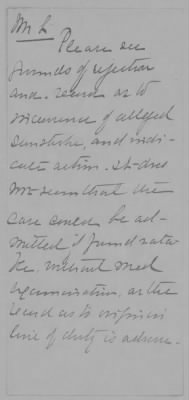 Mr L
Please see
grounds of rejection
and record as to
incurrence of alleged
sunstroke, and indi-
cate action. It does
not seem that the
case could be ad-
mitted if found ratea-
ble, without med
examination, as the
record as to origin in
line of duty is adverse.